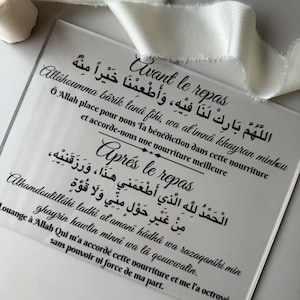 Avant le repas
اللَّهُمَّ بَارِكْ لَنَا فِيهِ، وَأَطْعِمْنَا خَيْرًا مِنْهُ
Allâhoumma bârik lanâ fîhi, wa at'imnâ khayran minhou
Ô Allah place pour nous Ta bénédiction dans cette nourriture
et accorde-nous une nourriture meilleure
Après le repas
الْحَمْدُ لِلَّهِ الَّذِي أَطْعَمَنِي هَذَا، وَرَزَقَنِيهِ،
مِنْ غَيْرِ حَوْلٍ مِنِّي وَلَا قُوَّةٍ
Alhamdoulillâhi ladhî at'amanî hâdhâ wa razaqanîhi min
ghayrin hawlin minnî wa lâ qouwwatin.
Louange à Allah Qui m'a accordé cette nourriture et me l'a octroyée
sans pouvoir ni force de ma part.